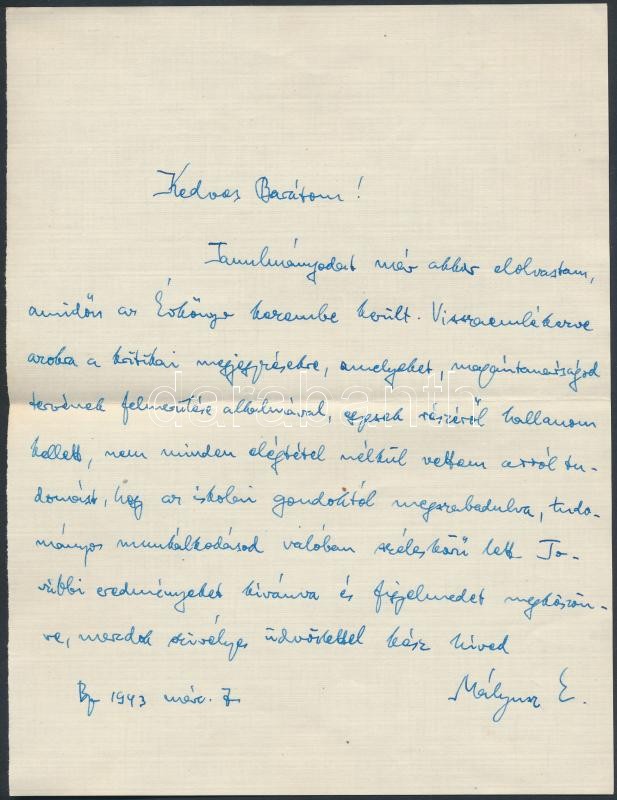 Kedves Barátom!
Tanulmányodat már akkor elolvastam,
amidőn az Évkönyv kezembe került. Visszaemlékezve
azokra a kritikai megjegyzésekre, amelyeket, magántanárságod
tervének felmerülése alkalmával, egyesek részéről hallanom
kellett, nem minden elégtétel nélkül vettem arról tu-
domást, hogy az iskolai gondoktól megszabadulva, tudo-
mányos munkálkodásod valóban széleskörű lett. To-
vábbi eredményeket kívánva és figyelmedet megköszön-
ve, maradok szívélyes üdvözlettel kész híved
Bp 1943 márc. 7. Mályusz E.
darabanth